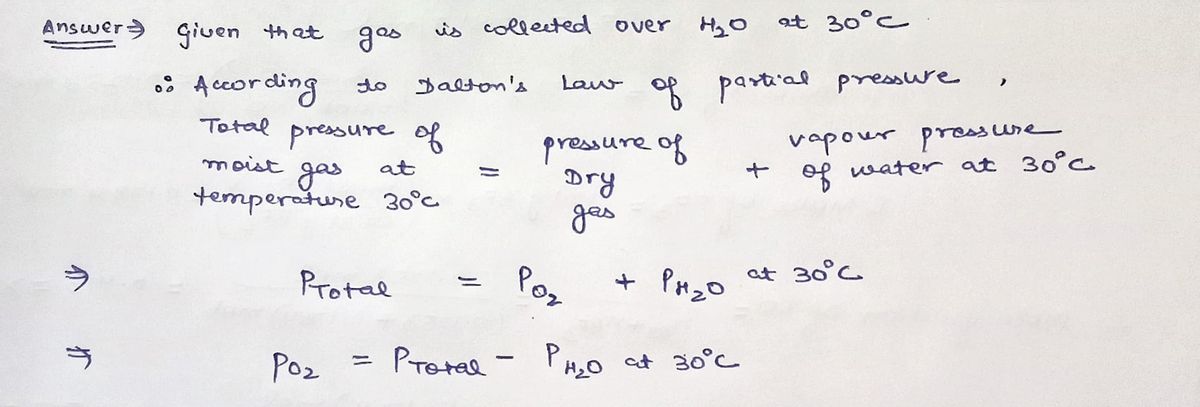 Answer⇒ Given that gas is collected over H₂O at 30°C
∴ According to Dalton's Law of partial pressure,
Total pressure of moist gas at temperature 30°C = pressure of Dry gas + vapour pressure of water at 30°C
⇒ PTotal = PO₂ + PH₂O at 30°C
⇒ PO₂ = PTotal - PH₂O at 30°C